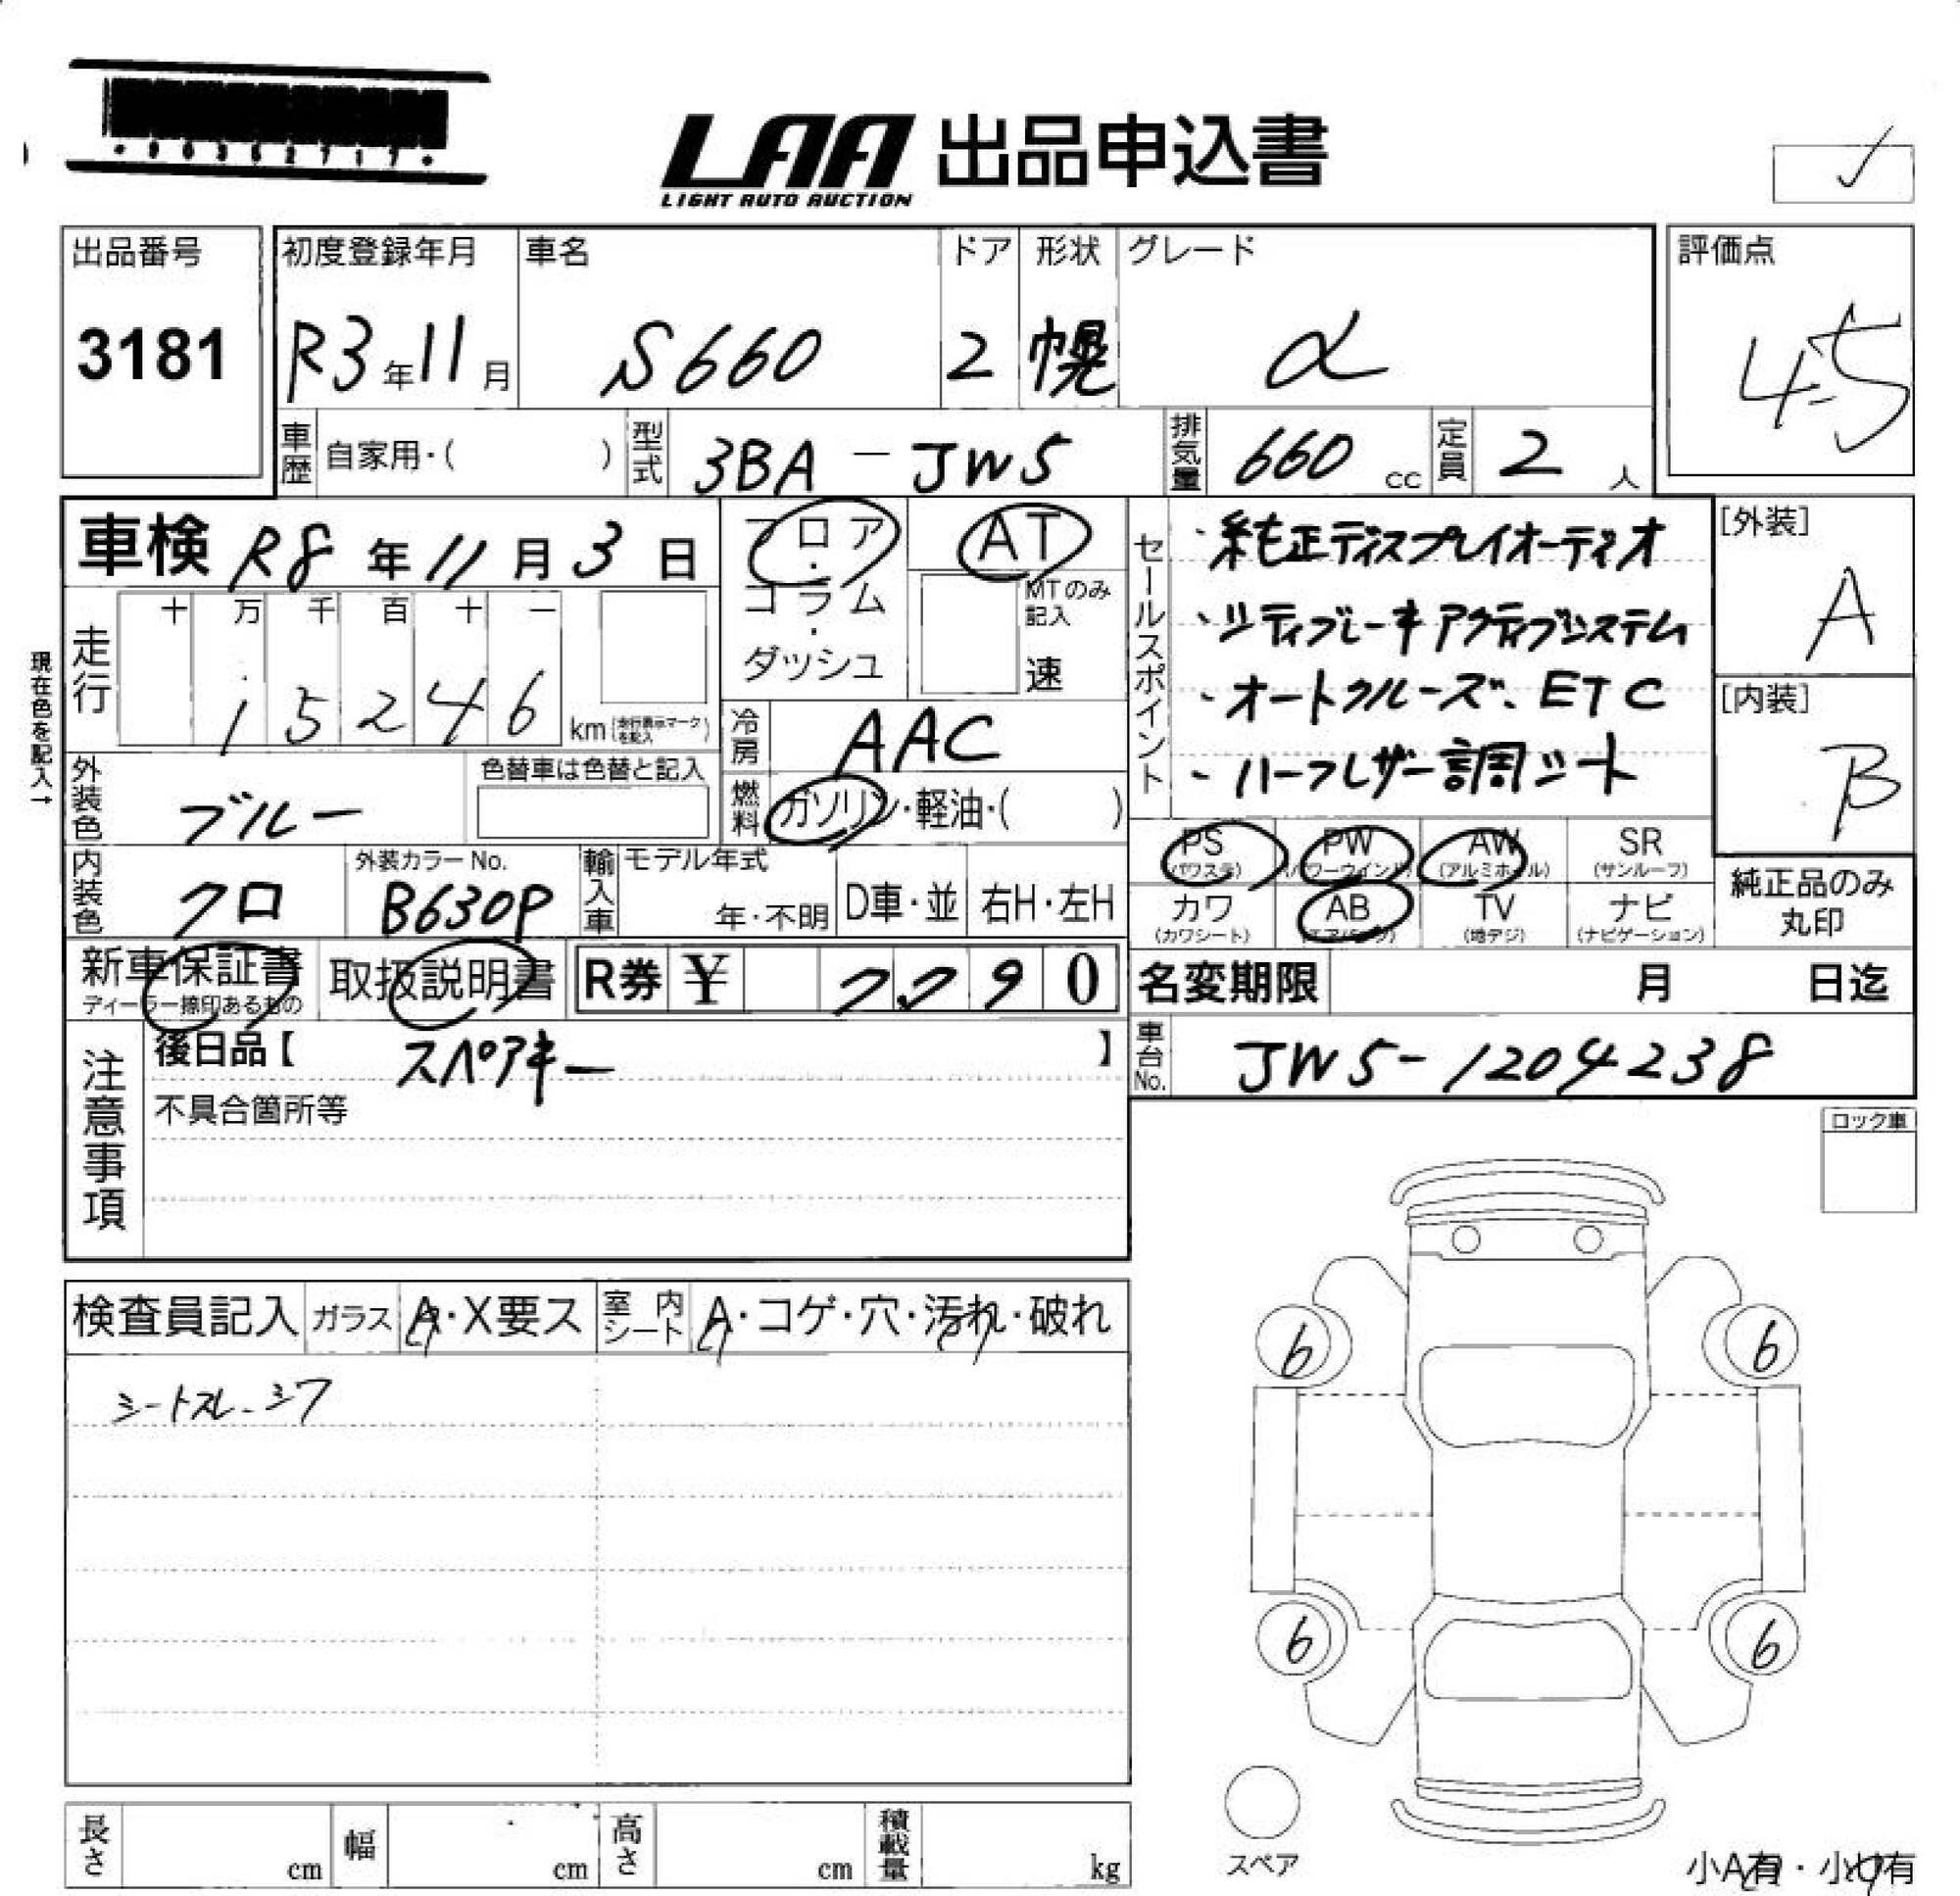 LAA 出品申込書
LIGHT AUTO AUCTION
出品番号
3181
初度登録年月
R3年11月
車名
S660
ドア
2
形状
幌
グレード
α
評価点
4.5
車歴 自家用・( )
型式 3BA-JW5
排気量 660 cc
定員 2 人
車検 R8年11月3日
フロア・コラム・ダッシュ
AT
MTのみ記入
速
セールスポイント
・純正ディスプレイオーディオ
・シティブレーキアクティブシステム
・オートクルーズ、ETC
・ハーフレザー調シート
[外装]
A
[内装]
B
現在色を記入→
走行
十 万 千 百 十 一
15246
km(走行表示マークを記入)
冷房 AAC
燃料 ガソリン・軽油・( )
外装色 ブルー
色替車は色替と記入
内装色 クロ
外装カラーNo.
B630P
輸入車
モデル年式
年・不明
D車・並
右H・左H
PS (パワステ)
PW (パワーウインド)
AW (アルミホイル)
SR (サンルーフ)
カワ (カワシート)
AB (エアバッグ)
TV (地デジ)
ナビ (ナビゲーション)
純正品のみ丸印
新車保証書
ディーラー捺印あるもの
取扱説明書
R券 ¥ 7,790
名変期限 月 日迄
車台No. JW5-1204238
注意事項
後日品【 スペアキー 】
不具合箇所等
ロック車
検査員記入
ガラス A・X要ス
室内シート A・コゲ・穴・汚れ・破れ
シートスレ、シワ
6
6
6
6
スペア
長さ cm
幅 cm
高さ cm
積載量 kg
小A有・小U有